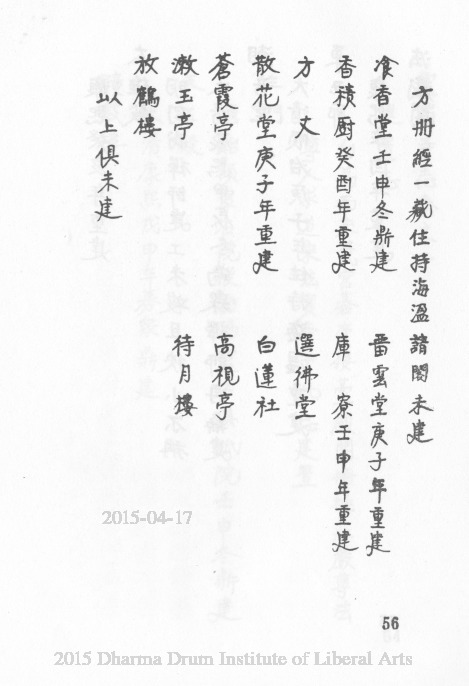 方冊經一藏住持海溫請閣未建
飡香堂壬申冬鼎建 雷雲堂庚子年重建
香積厨癸酉年重建 庫寮壬申年重建
方丈 選佛堂
散花堂庚子年重建 白蓮社
蒼霞亭 高視亭
漱玉亭 待月樓
放鶴樓
以上俱未建
2015-04-17
56
2015 Dharma Drum Institute of Liberal Arts